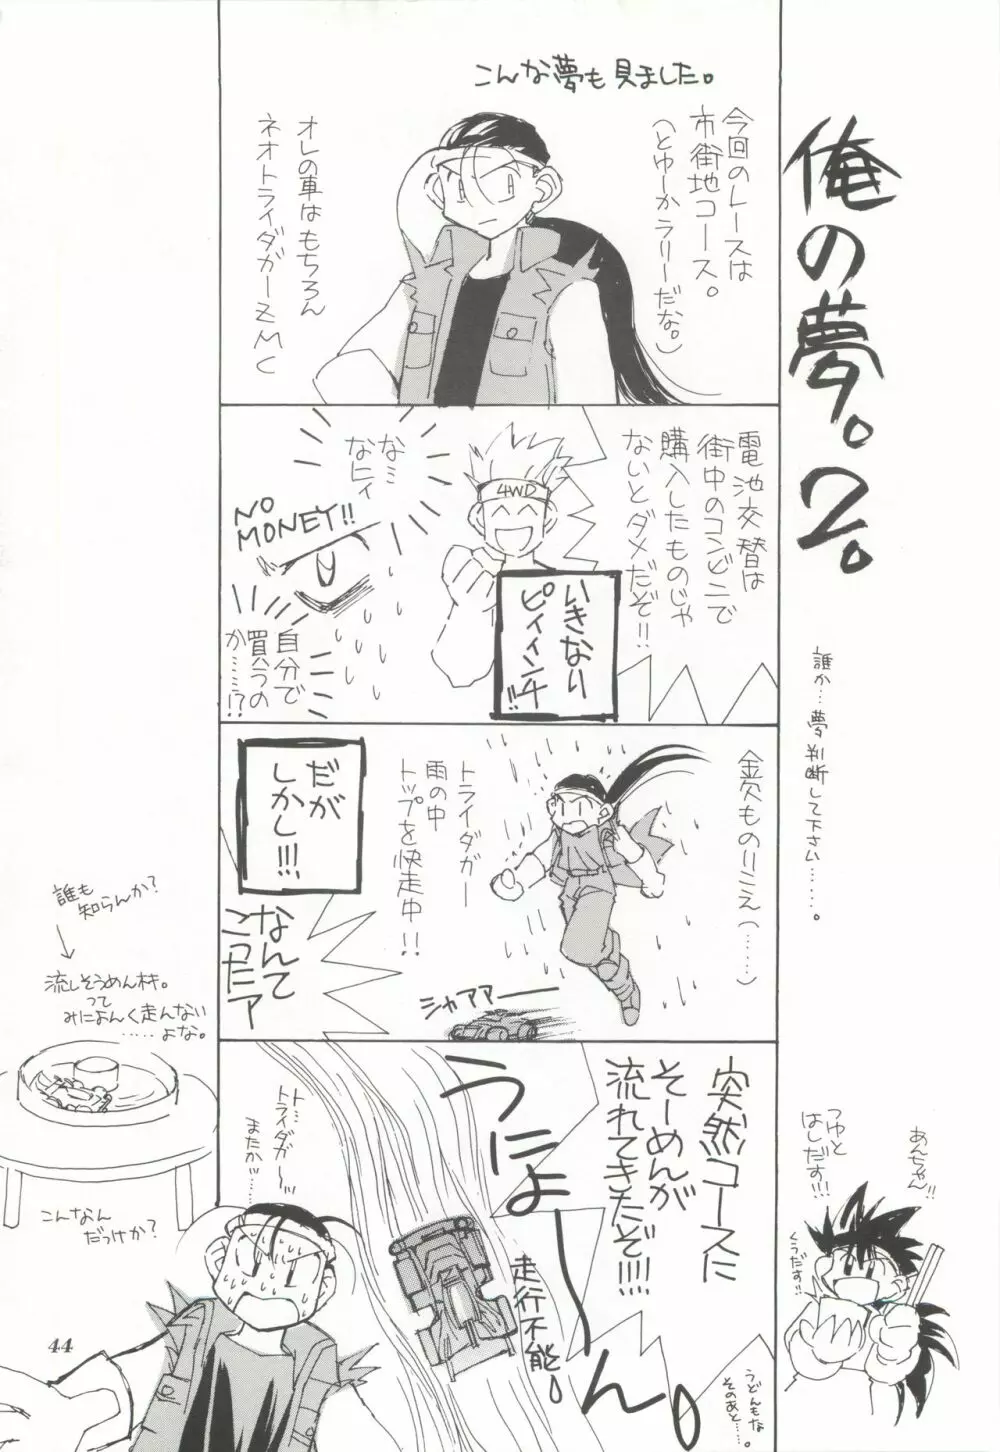 俺の夢。2。
誰か…夢判断して下さい……。
こんな夢も見ました。
今回のレースは
市街地コース。
(とゆーかラリーだな。)
オレの車はもちろん
ネオトライダガーZMC
電池交替は
街中のコンビニで
購入したものじゃ
ないとダメだぞ!!
4WD
いきなり
ピィィンチ!!
なミ
なにィ
NO
MONEY!!
自分で
買うの
か……!?
トライダガー
雨の中
トップを快走中!!
シャアアー
だが
しかし!!!
なんて
こったァ
突然コースに
そーめんが
流れてきたぞ!!!!
うにょーーん。
走行不能。
うどんもな
そのあと…。
ト…
トライダガー
またか…
誰も
知らんか?
流しそうめん村。
って
みによんく走んない
……よな。
こんなん
だっけか?
あんちゃん!!
つゆと
はしだす!!!
くうだす!!
44